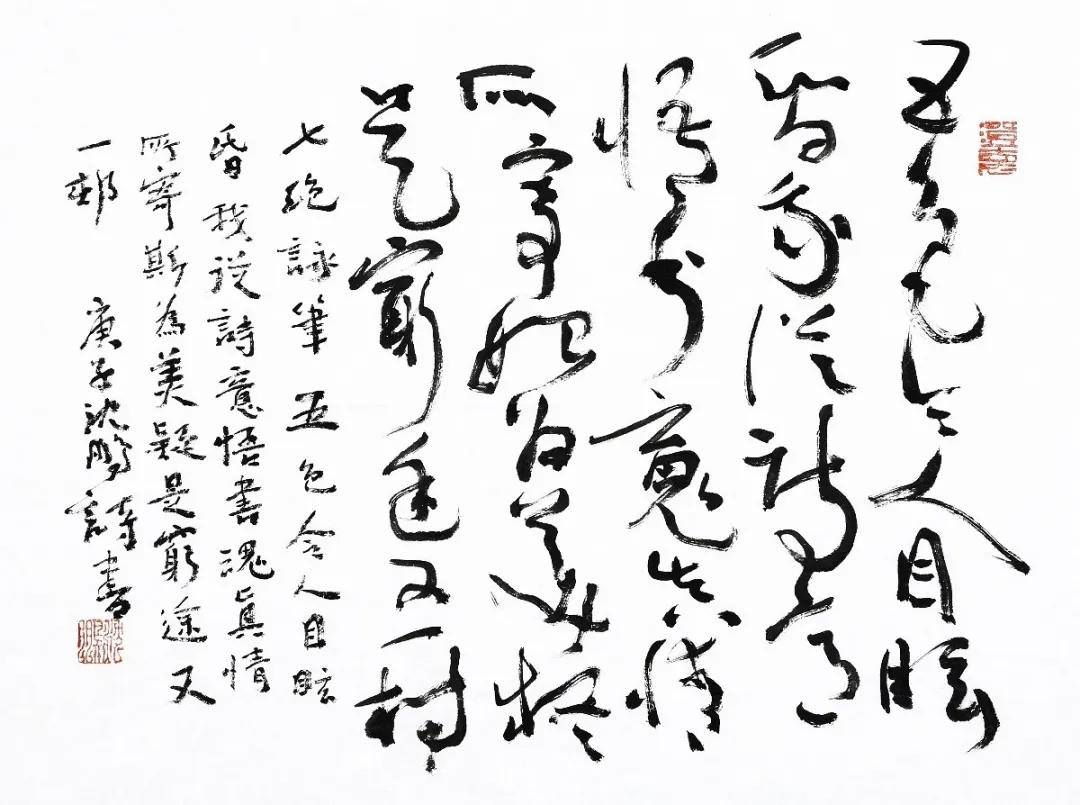 五色令人目眩
昏我從詩意
悟書魂真情
所寄斯為美疑
是窮途又一村
七絕詠筆 五色令人目眩
昏我從詩意悟書魂真情
所寄斯為美疑是窮途又
一邨 庚子沈鵬詩書